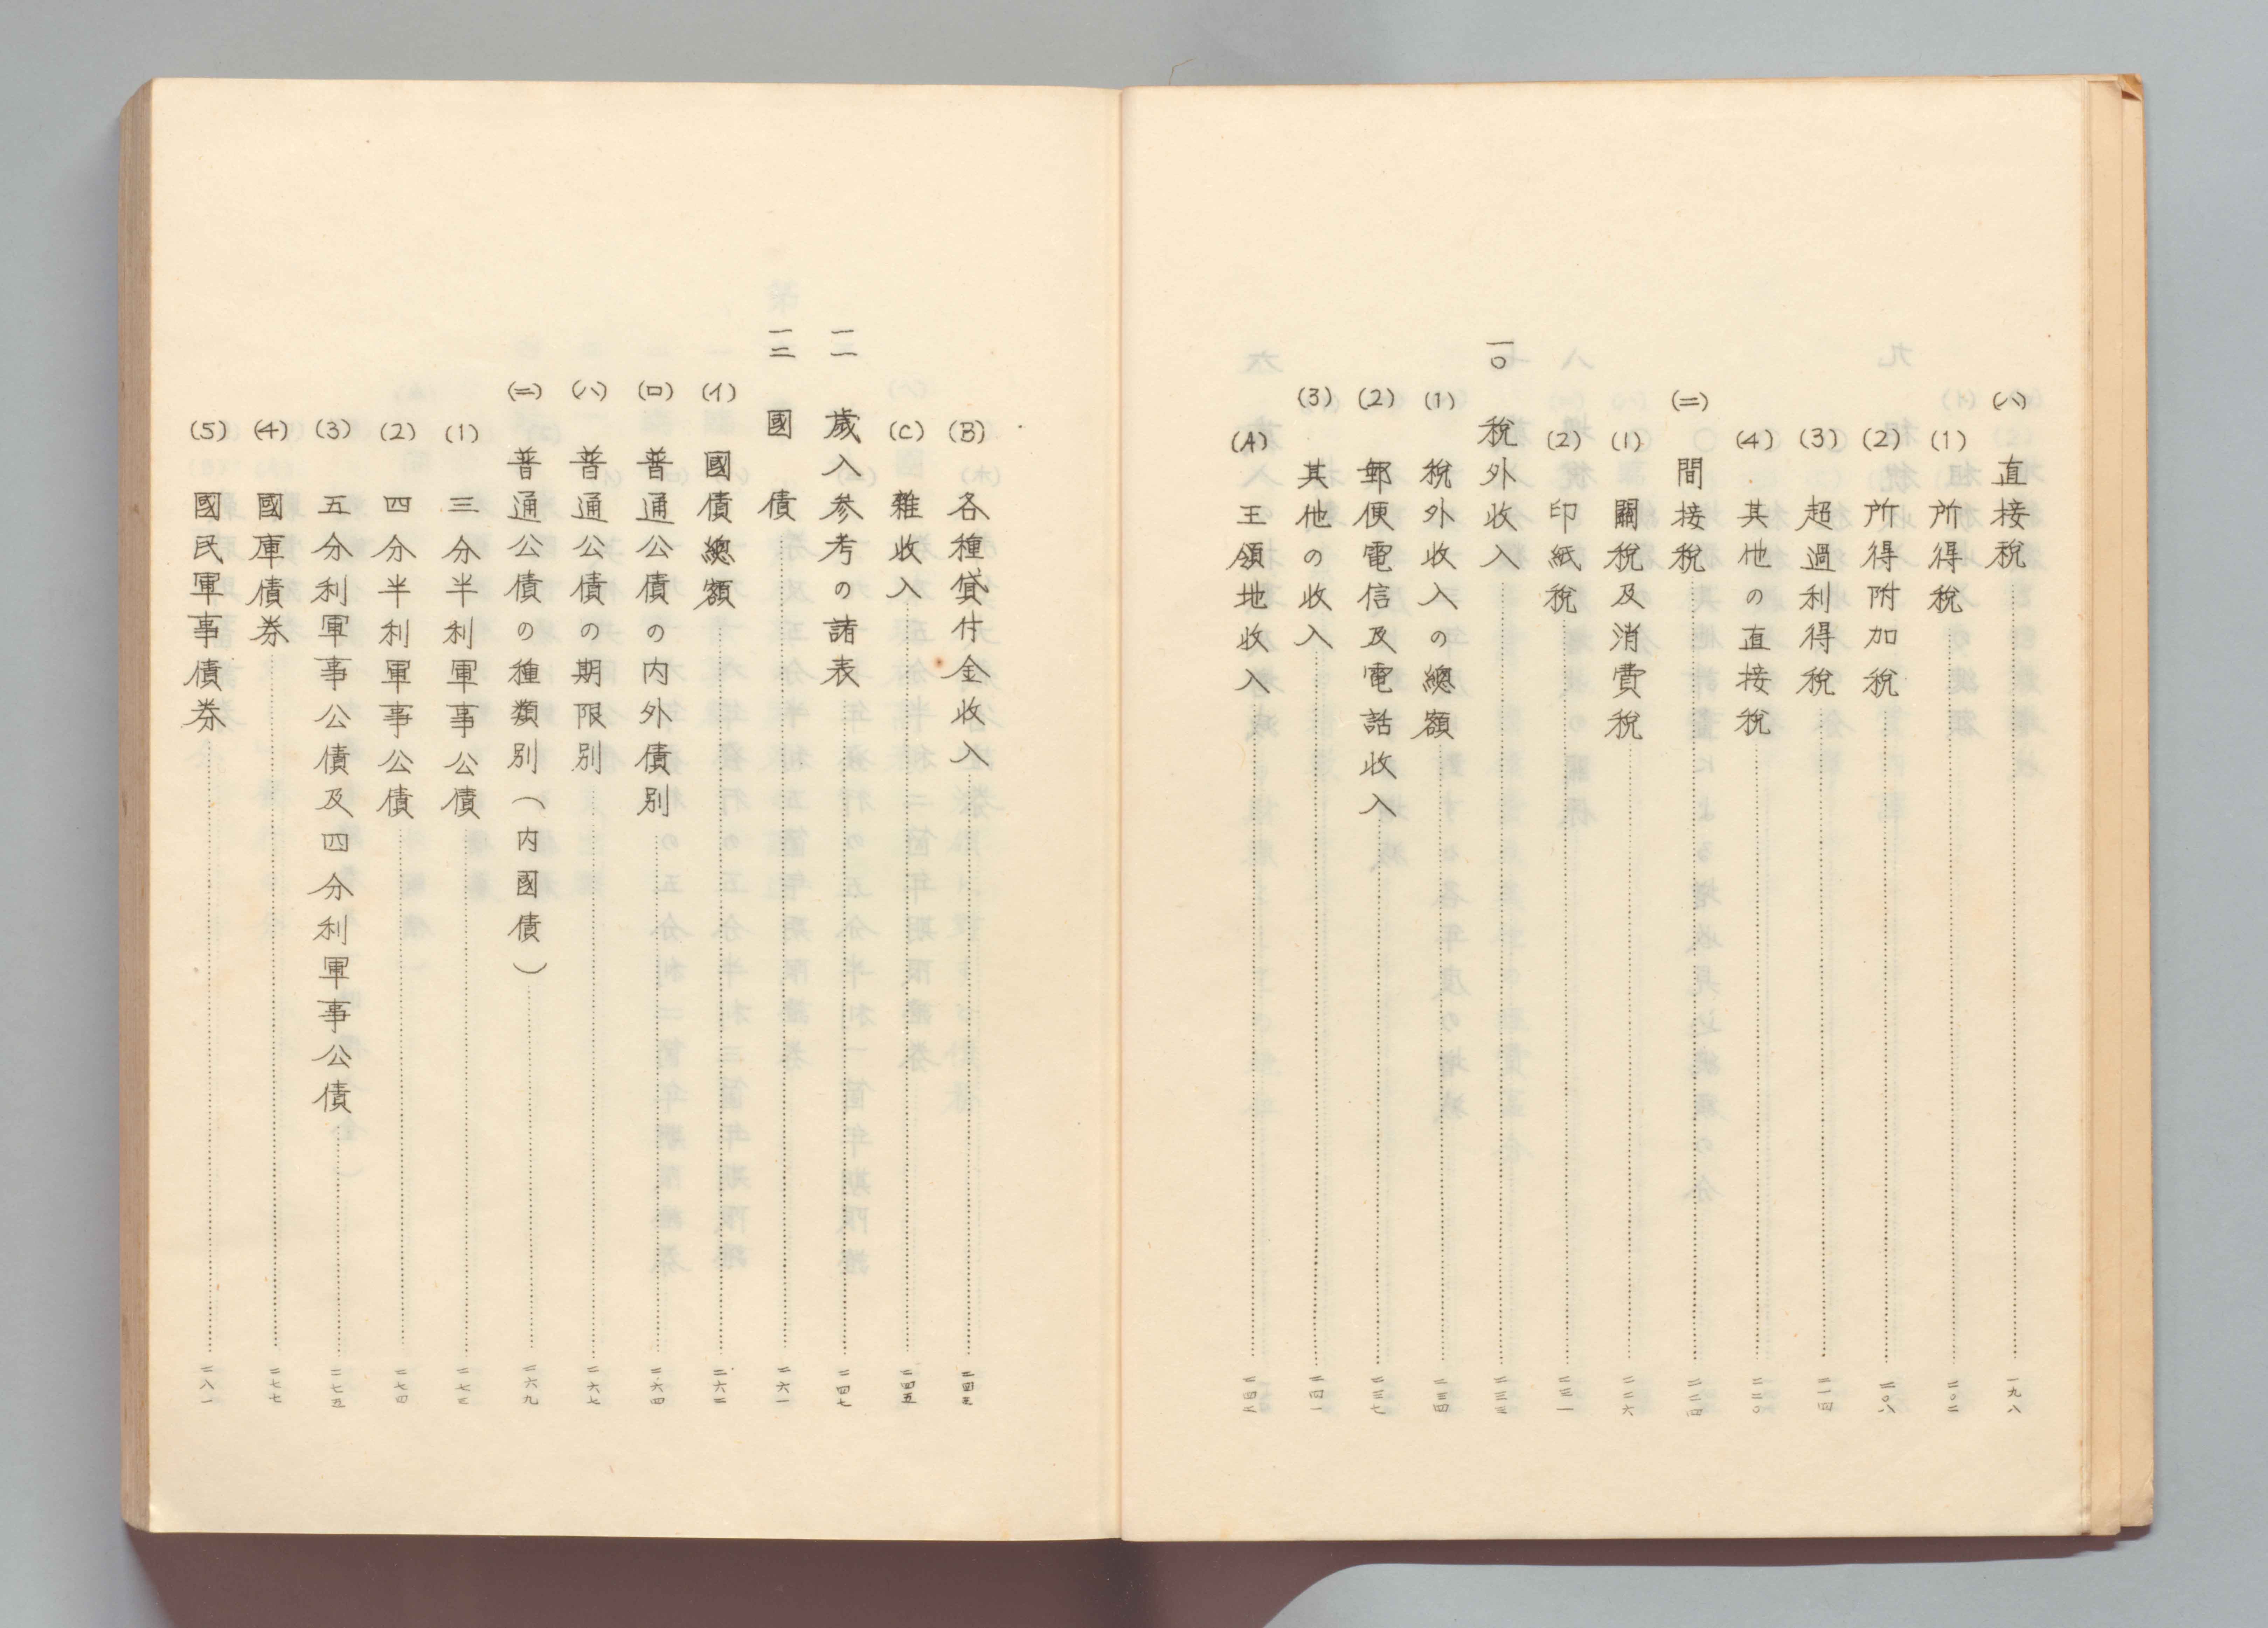 (ハ) 直接稅……一九八
(1) 所得稅……二〇二
(2) 所得附加稅……二〇八
(3) 超過利得稅……二一四
(4) 其他の直接稅……二二〇
(ニ) 間接稅……二二四
(1) 關稅及消費稅……二二六
(2) 印紙稅……二三一
一〇 稅外收入……二三三
(1) 稅外收入の總額……二三四
(2) 郵便電信及電話收入……二三七
(3) 其他の收入……二四一
(A) 王領地收入
(B) 各種貸付金收入……二四三
(C) 雜收入……二四五
一一 歲入參考の諸表……二四七
一二 國債……二六一
(イ) 國債總額……二六三
(ロ) 普通公債の内外債別……二六四
(ハ) 普通公債の期限別……二六七
(ニ) 普通公債の種類別(内國債)……二六九
(1) 三分半利軍事公債……二七三
(2) 四分半利軍事公債……二七四
(3) 五分利軍事公債及四分利軍事公債……二七五
(4) 國庫債券……二七七
(5) 國民軍事債券……二八一